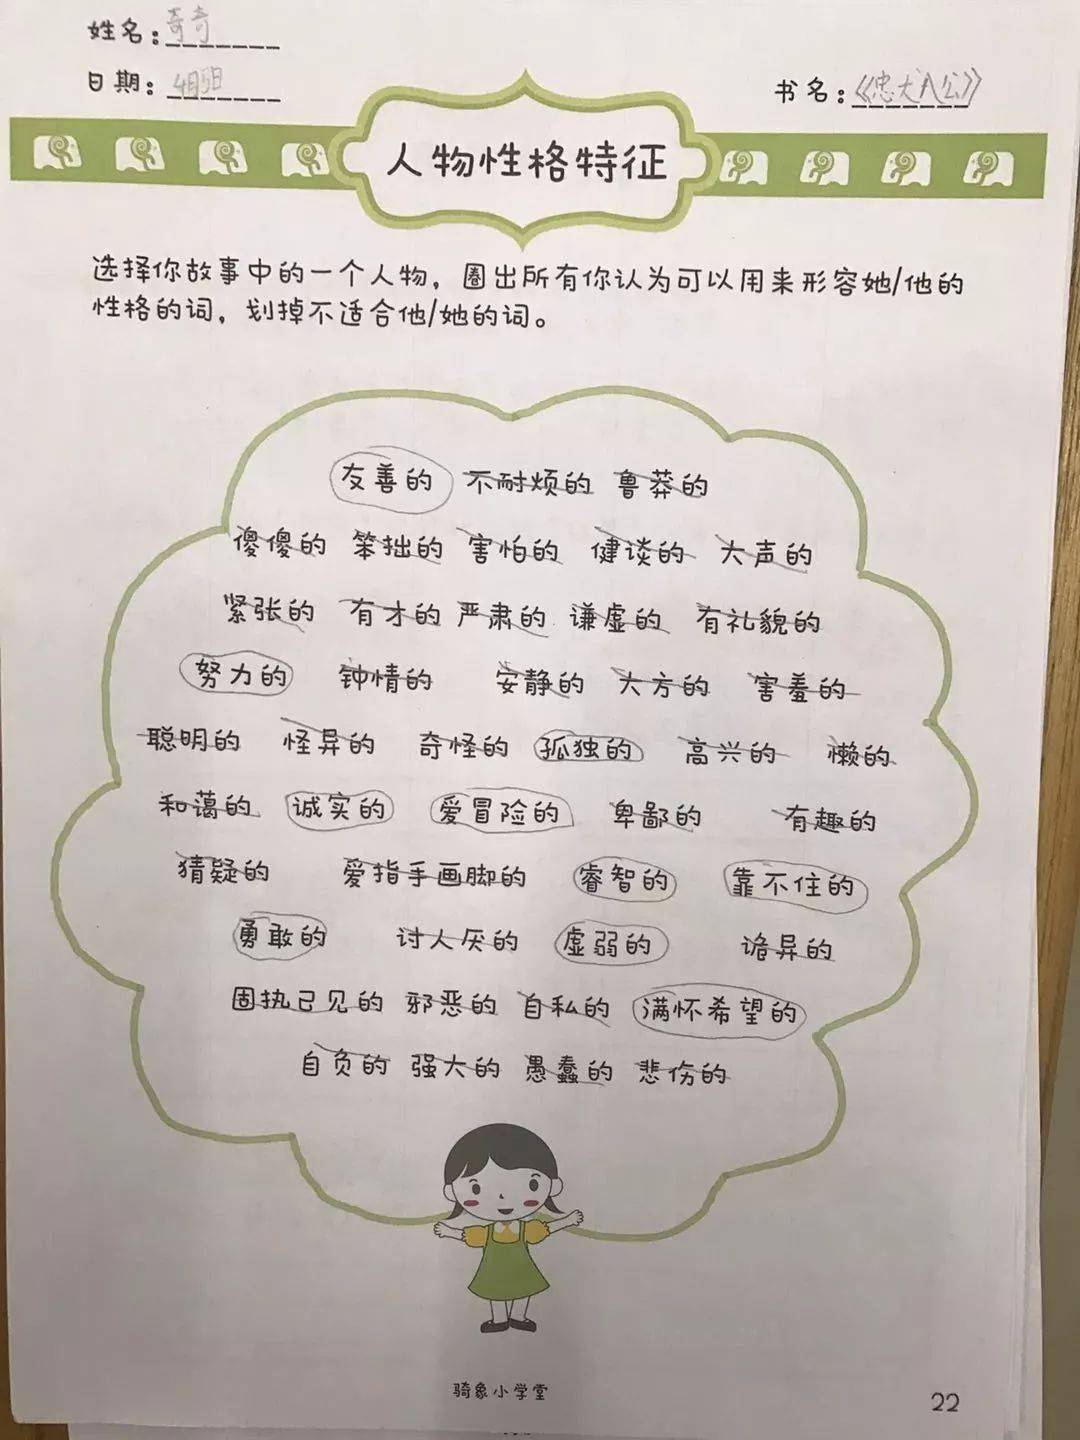 姓名：奇奇
日期：4月5日
书名：《忠犬八公》
人物性格特征
选择你故事中的一个人物，圈出所有你认为可以用来形容她/他的
性格的词，划掉不适合他/她的词。
友善的 不耐烦的 鲁莽的
傻傻的 笨拙的 害怕的 健谈的 大声的
紧张的 有才的 严肃的 谦虚的 有礼貌的
努力的 钟情的 安静的 大方的 害羞的
聪明的 怪异的 奇怪的 孤独的 高兴的 懒的
和蔼的 诚实的 爱冒险的 卑鄙的 有趣的
猜疑的 爱指手画脚的 睿智的 靠不住的
勇敢的 讨人厌的 虚弱的 诡异的
固执己见的 邪恶的 自私的 满怀希望的
自负的 强大的 愚蠢的 悲伤的
骑象小学堂
22